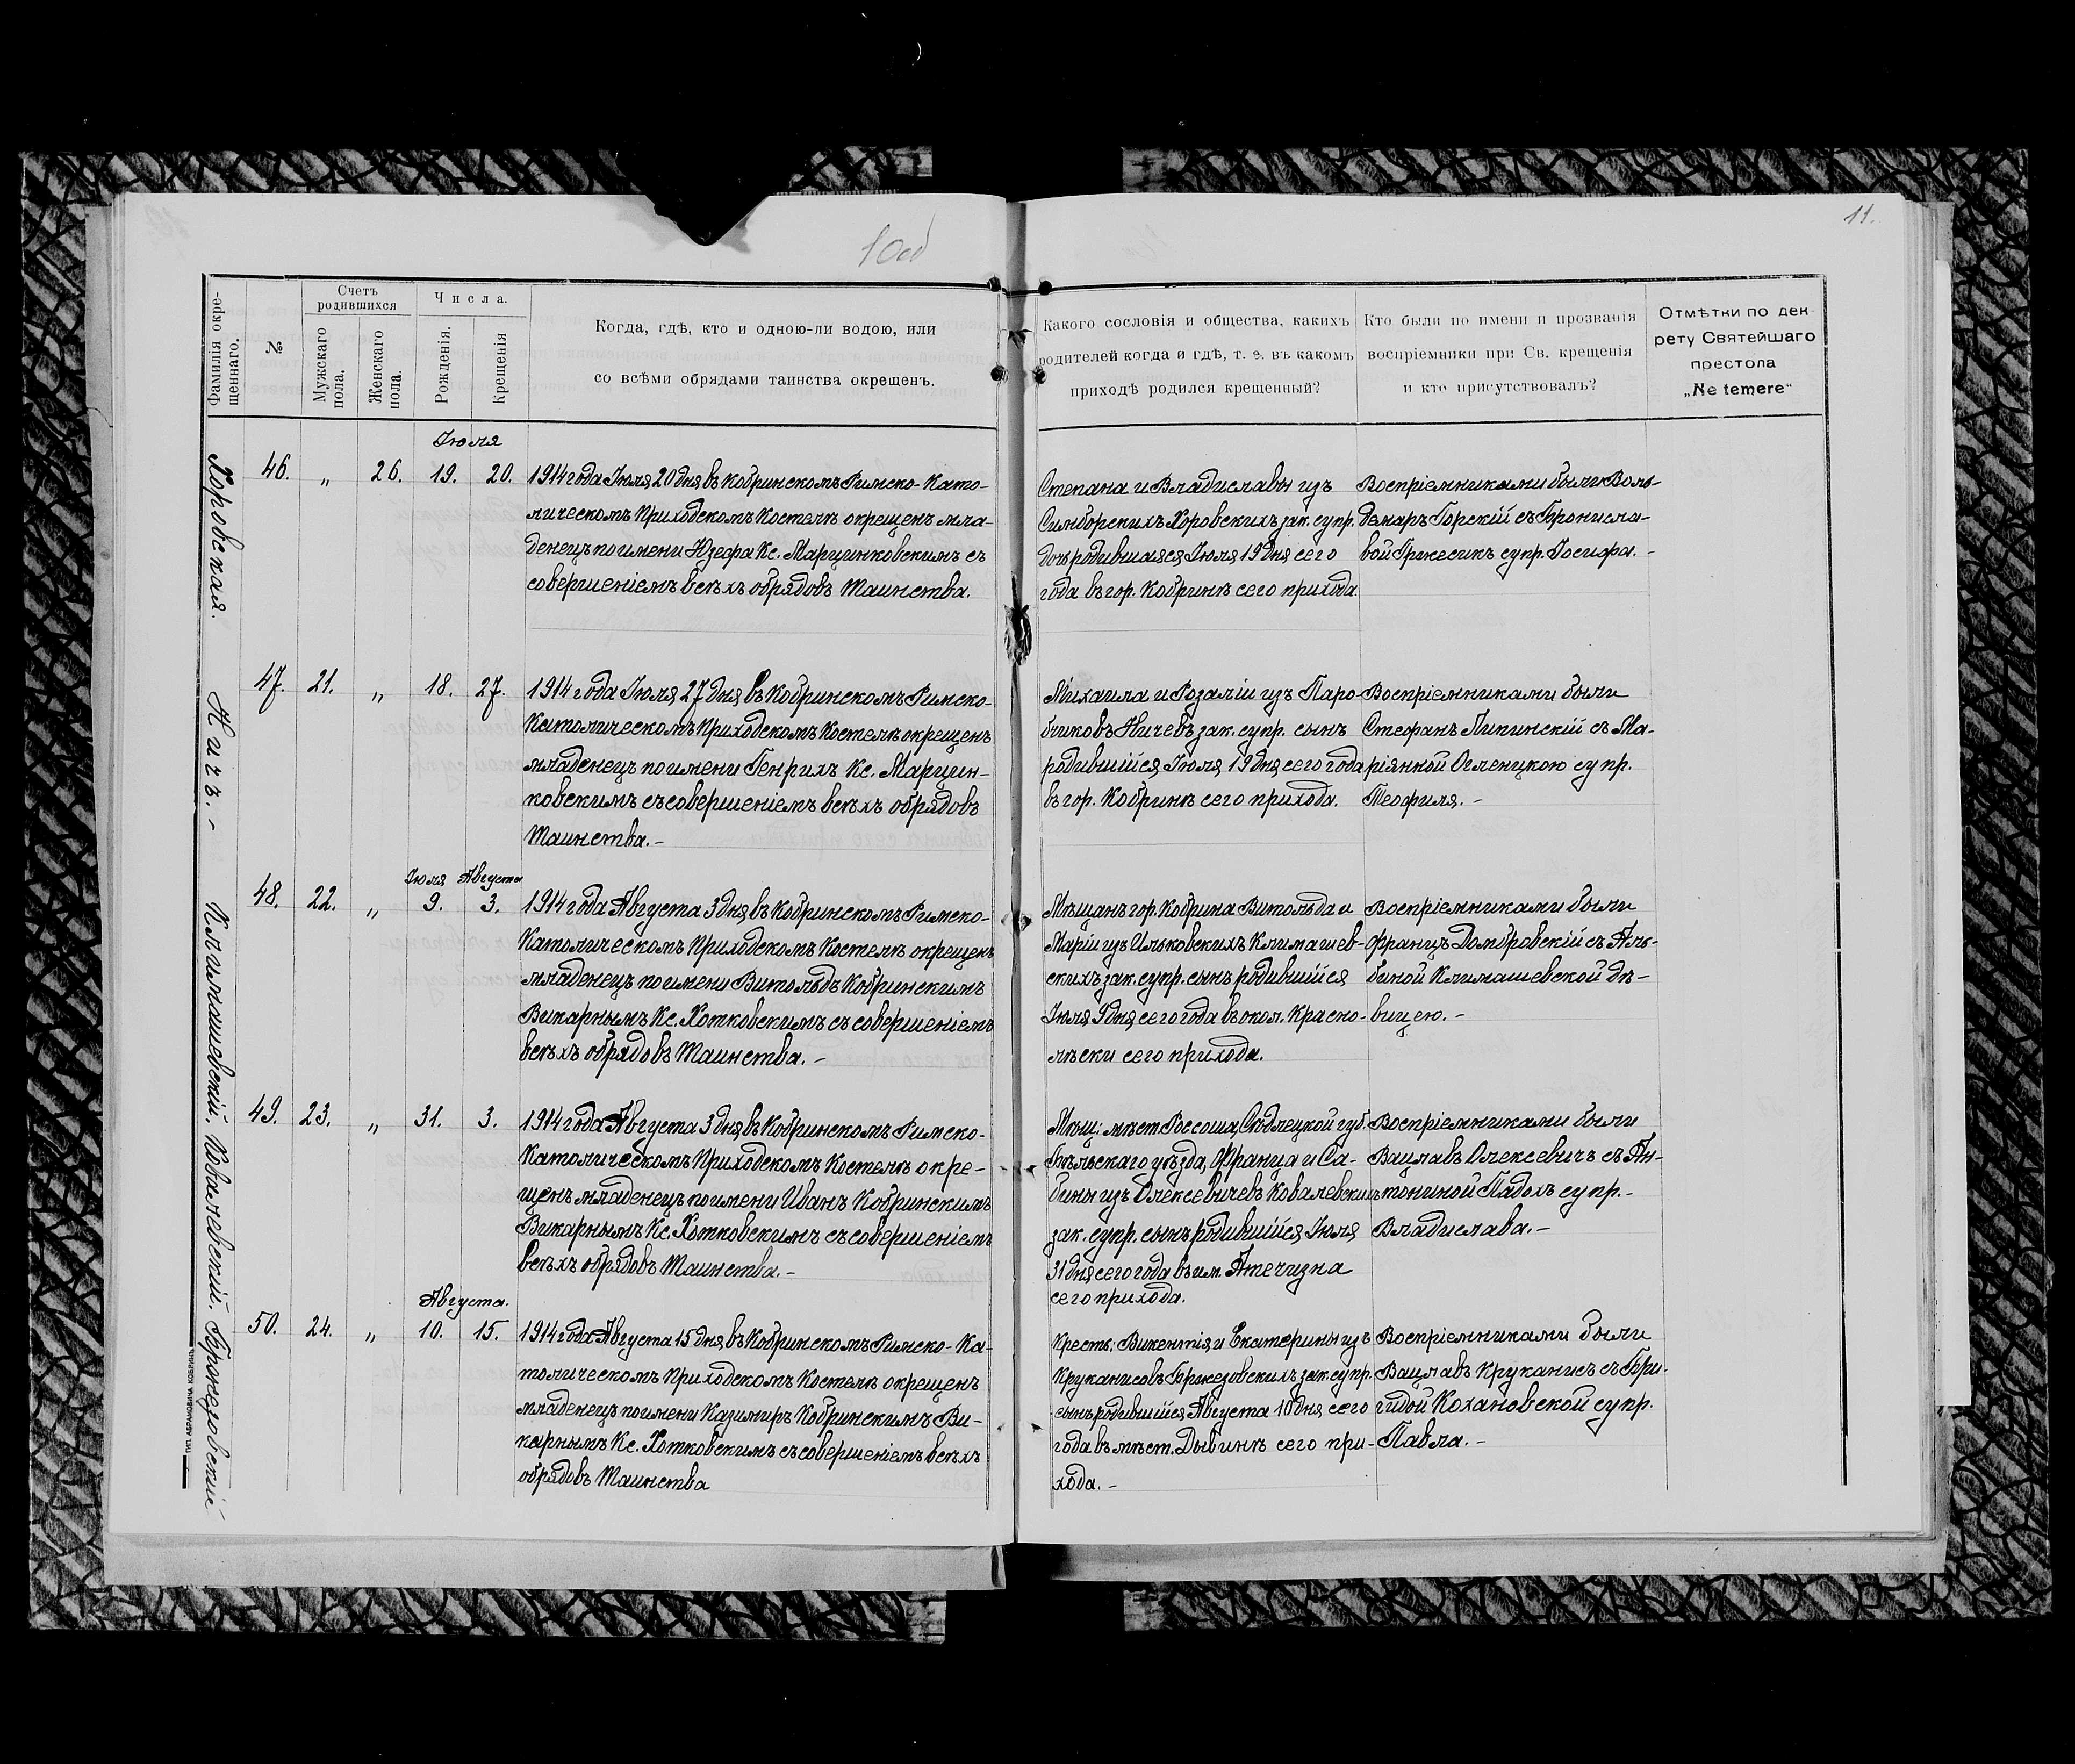 10об
11.
Фамилія окре-
щеннаго.
№
Счетъ
родившихся
Мужскаго
пола.
Женскаго
пола.
Числа.
Рожденія.
Крещенія
Когда, гдѣ, кто и одною-ли водою, или
со всѣми обрядами таинства окрещенъ.
Какого сословія и общества, какихъ
родителей когда и гдѣ, т. е. въ какомъ
приходѣ родился крещенный?
Кто были по имени и прозванія
воспріемники при Св. крещенія
и кто присутствовалъ?
Отмѣтки по дек-
рету Святейшаго
престола
„Ne temere“
Хоровская.
Іюля
46. „ 26. 19. 20.
1914 года Іюля 20 дня въ Кобринскомъ Римско-Като-
лическомъ Приходскомъ Костелѣ окрещенъ мла-
денецъ по имени Юзефа Кс. Марцинковскимъ съ
совершеніемъ всѣхъ обрядовъ Таинства.
Степана и Владиславы изъ
Симборскихъ Хоровскихъ зак. супр.
дочь родившаяся Іюля 19 дня сего
года въ гор. Кобринѣ сего прихода
Воспріемниками были Воль-
демаръ Горскій съ Бронисла-
вой Гржесикъ супр. Іосифа. -
Ничъ. -
47. 21. „ 18. 27.
1914 года Іюля 27 дня въ Кобринскомъ Римско-
Католическомъ Приходскомъ Костелѣ окрещенъ
младенецъ по имени Генрихъ Кс. Марцин-
ковскимъ съ совершеніемъ всѣхъ обрядовъ
Таинства. -
Михаила и Розаліи изъ Паро-
бчиковъ Ничевъ зак. супр. сынъ
родившійся Іюля 19 дня сего года
въ гор. Кобринѣ сего прихода.
Воспріемниками были
Стефанъ Липинскій съ Ма-
ріянной Огленцкою супр.
Теофиля. -
Климашевскій.
Іюля Августа
48. 22. „ 9. 3.
1914 года Августа 3 дня въ Кобринскомъ Римско-
Католическомъ Приходскомъ Костелѣ окрещенъ
младенецъ по имени Витольдъ Кобринскимъ
Викарнымъ Кс. Хотковскимъ съ совершеніемъ
всѣхъ обрядовъ Таинства. -
Мѣщанъ гор. Кобрина Витольда и
Маріи изъ Ильковскихъ Климашев-
скихъ зак. супр. сынъ родившійся
Іюля 9 дня сего года въ окол. Красно-
лѣски сего прихода.
Воспріемниками были
Францъ Домбровскій съ Аль-
биной Климашевской дѣ-
вицею. -
Ковалевскій.
49. 23. „ 31. 3.
1914 года Августа 3 дня въ Кобринскомъ Римско-
Католическомъ Приходскомъ Костелѣ окре-
щенъ младенецъ по имени Иванъ Кобринскимъ
Викарнымъ Кс. Хотковскимъ съ совершеніемъ
всѣхъ обрядовъ Таинства. -
Мѣщ: мѣст. Россоша, Сѣдлецкой губ.
Бѣльскаго уѣзда, Франца и Са-
бины изъ Олексевичевъ Ковалевскихъ
зак. супр. сынъ родившійся Іюля
31 дня сего года въ им. Атечизна
сего прихода.
Воспріемниками были
Вацлавъ Олексевичъ съ Ан-
тониной Падохъ супр. -
Владислава. -
Бржезовскій -
Августа.
50. 24. „ 10. 15.
1914 года Августа 15 дня въ Кобринскомъ Римско-Ка-
толическомъ Приходскомъ Костелѣ окрещенъ
младенецъ по имени Казимиръ Кобринскимъ Ви-
карнымъ Кс. Хотковскимъ съ совершеніемъ всѣхъ
обрядовъ Таинства
Кресть: Викентія и Екатерины изъ
Круканисовъ Бржезовскихъ зак. супр.
сынъ родившійся Августа 10 дня сего
года въ мѣст. Дывинѣ сего при-
хода. -
Воспріемниками были
Вацлавъ Круканисъ съ Бри-
гидой Кохановской супр.
Павла. -
ТИП. АБРАМОВИЧА КОБРИНЪ